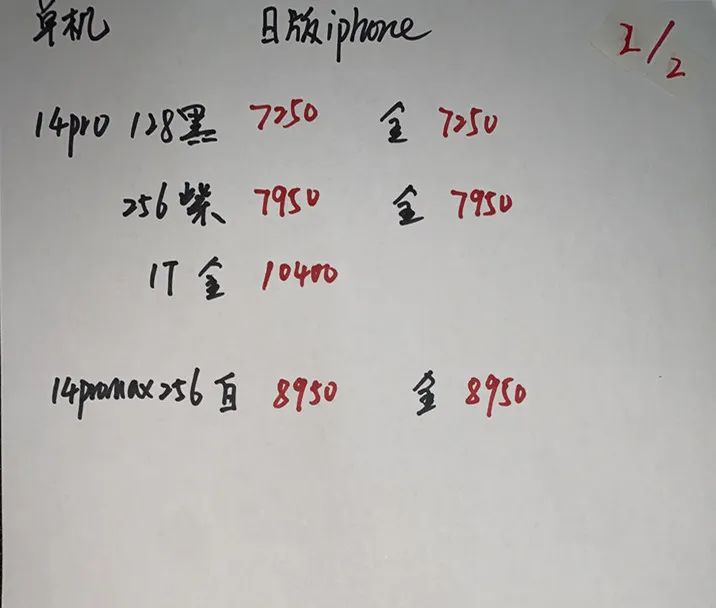 单机 日版iphone 2/2
14pro 128黑 7250 金 7250
256紫 7950 金 7950
1T 金 10400
14promax256白 8950 金 8950